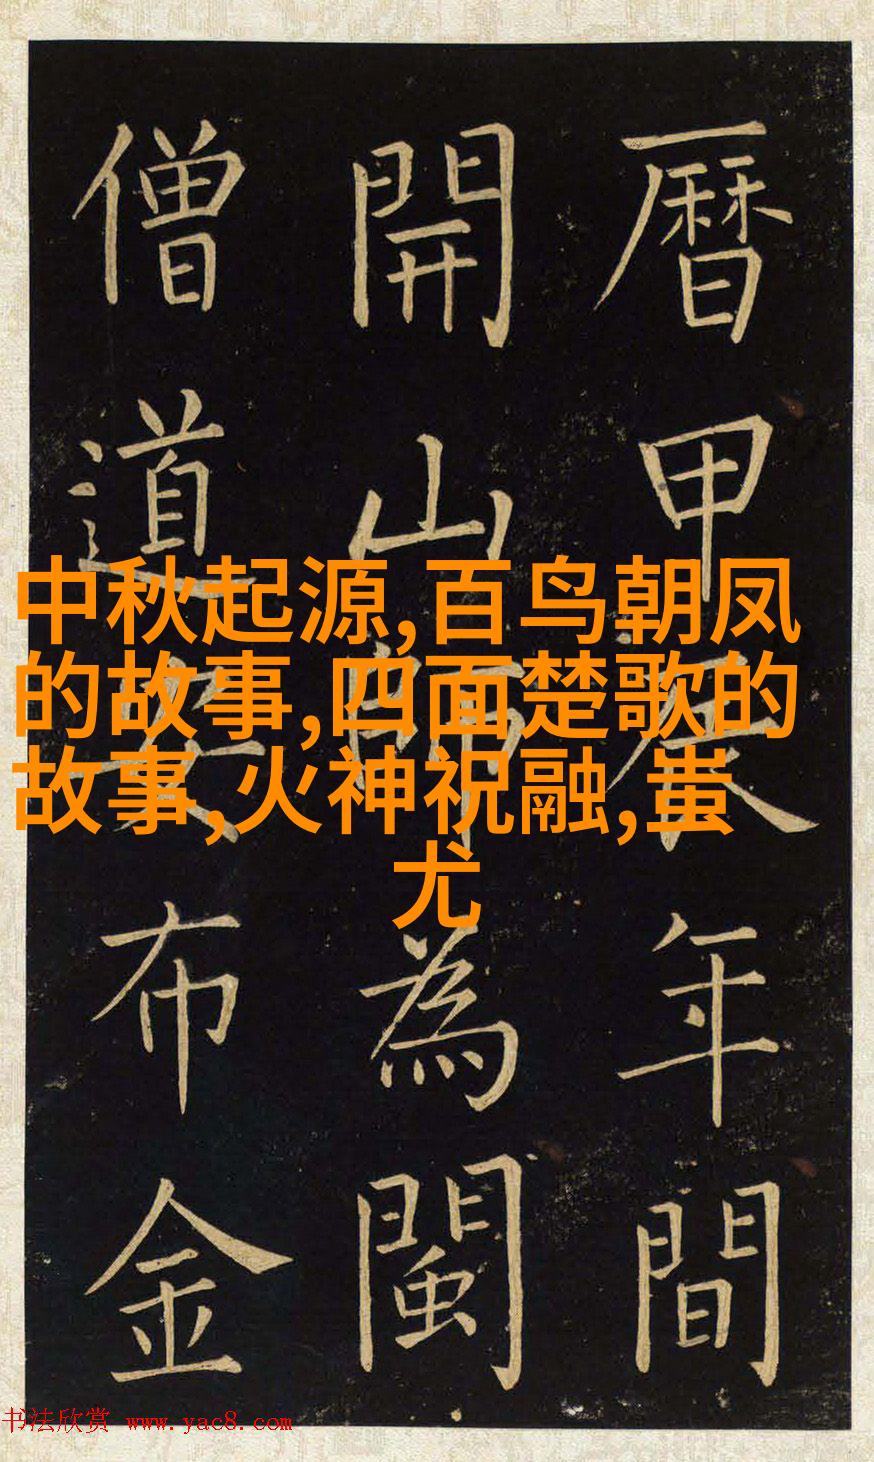 曆甲辰年間
開山師為閩
僧道安布金
中秋起源,百鸟朝凤
的故事,四面楚歌的
故事,火神祝融,蚩
尤
书法欣赏 www.yac8.com